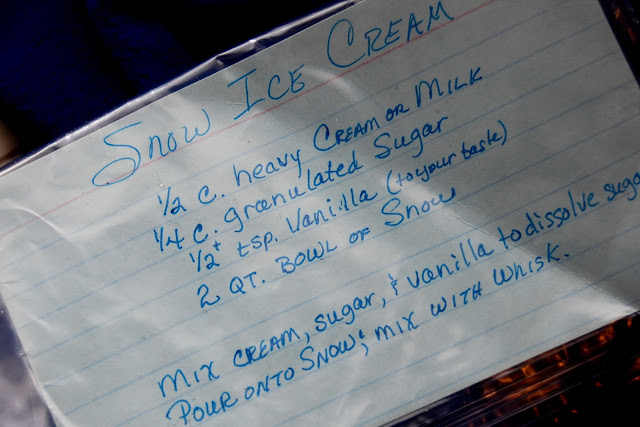 Snow Ice Cream
1/2 c. heavy Cream or Milk
1/4 c. granulated Sugar
1/2+ tsp. Vanilla (to your taste)
2 QT. Bowl of Snow
Mix cream, sugar, & vanilla to dissolve suga
Pour onto Snow & mix with whisk.